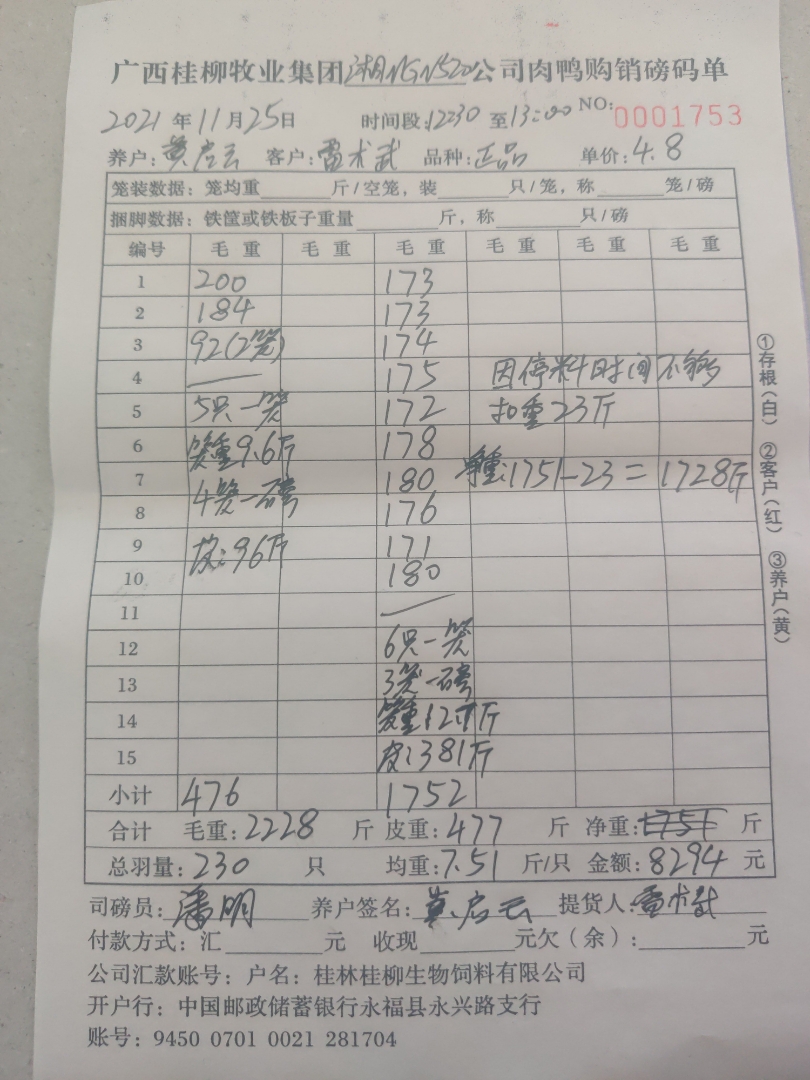 广西桂柳牧业集团湖NGN520公司肉鸭购销磅码单
2021年11月25日 时间段:12:30至13:00 NO: 0001753
养户:黄启云 客户:雷术武 品种:正品 单价:4.8
笼装数据：笼均重____斤/空笼，装____只/笼，称____笼/磅
捆脚数据：铁筐或铁板子重量____斤，称____只/磅
编号 毛重 毛重 毛重 毛重 毛重 毛重
1 200 173
2 184 173
3 92(2笼) 174
4 — 175 因停料时间不够
5 5只一笼 172 扣重23斤
6 笼重9.6斤 178
7 4笼一磅 180 净重:1751-23=1728斤
8 176
9 皮:96斤 171
10 180
11 —
12 6只一笼
13 3笼一磅
14 笼重:12.7斤
15 皮:381斤
小计 476 1752
合计 毛重:2228斤 皮重:477斤 净重:1751斤
总羽量:230只 均重:7.51斤/只 金额:8294元
司磅员:潘明 养户签名:黄启云 提货人:雷术武
付款方式：汇____元 收现____元欠（余）:____元
公司汇款账号：户名：桂林桂柳生物饲料有限公司
开户行：中国邮政储蓄银行永福县永兴路支行
账号：9450 0701 0021 281704
①存根(白) ②客户(红) ③养户(黄)